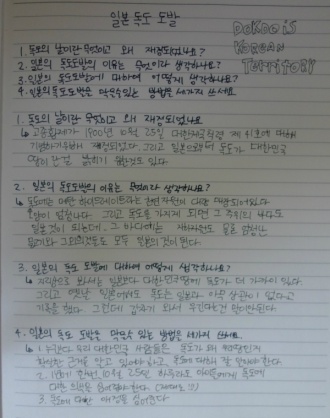 일본 독도 도발
DOKDO IS
KOREAN
TERRITORY
1. 독도의 날이란 무엇이고 왜 제정되었나요?
2. 일본의 독도도발의 이유는 무엇이라 생각하나요?
3. 일본의 독도도발에 대하여 어떻게 생각하나요?
4. 일본의 독도도발을 막을수있는 방법을 세가지 쓰세요.
1. 독도의 날이란 무엇이고 왜 제정되었나요
↳ 고종황제가 1900년 10월 25일 대한제국칙령 제41호에 대해
기념하기위해 제정되었다. 그리고 일본으로부터 독도가 대한민국
땅이란걸 밝히기 위한것도 있다.
2. 일본의 독도도발의 이유는 무엇이라 생각하나요?
↳ 독도에는 메탄 하이드레이트라는 천연자원이 다량 매장되어있다
그리고 독도를 가지게 되면 그 주위의 바다도
일본것이 되는데, 그 바다에는
모두 일본의 것이 된다.
3. 일본의 독도 도발에 대하여 어떻게 생각하나요?
↳ 지리상으로 봐서는 일본보다 대한민국땅에 독도가 더 가까이 있다.
그리고 옛날 일본에서도 독도는 일본과 아무 상관이 없다고
기록을 했다. 그런데 갑자기 와서 우긴다는건 말이안된다.
4. 일본의 독도 도발을 막을수 있는 방법은세가지 쓰세요.
↳ 1. 누구보다 우리 대한민국 사람들은 독도가 왜 우리땅인지
확실한 근거를 알고 있어야 하고, 독도에 대해서 잘 알아야한다
2. 1년에 한번 10월 25일 하루라도 아이들에게 독도에
대한 인식을
3. 독도에 대한 애정을 심어준다